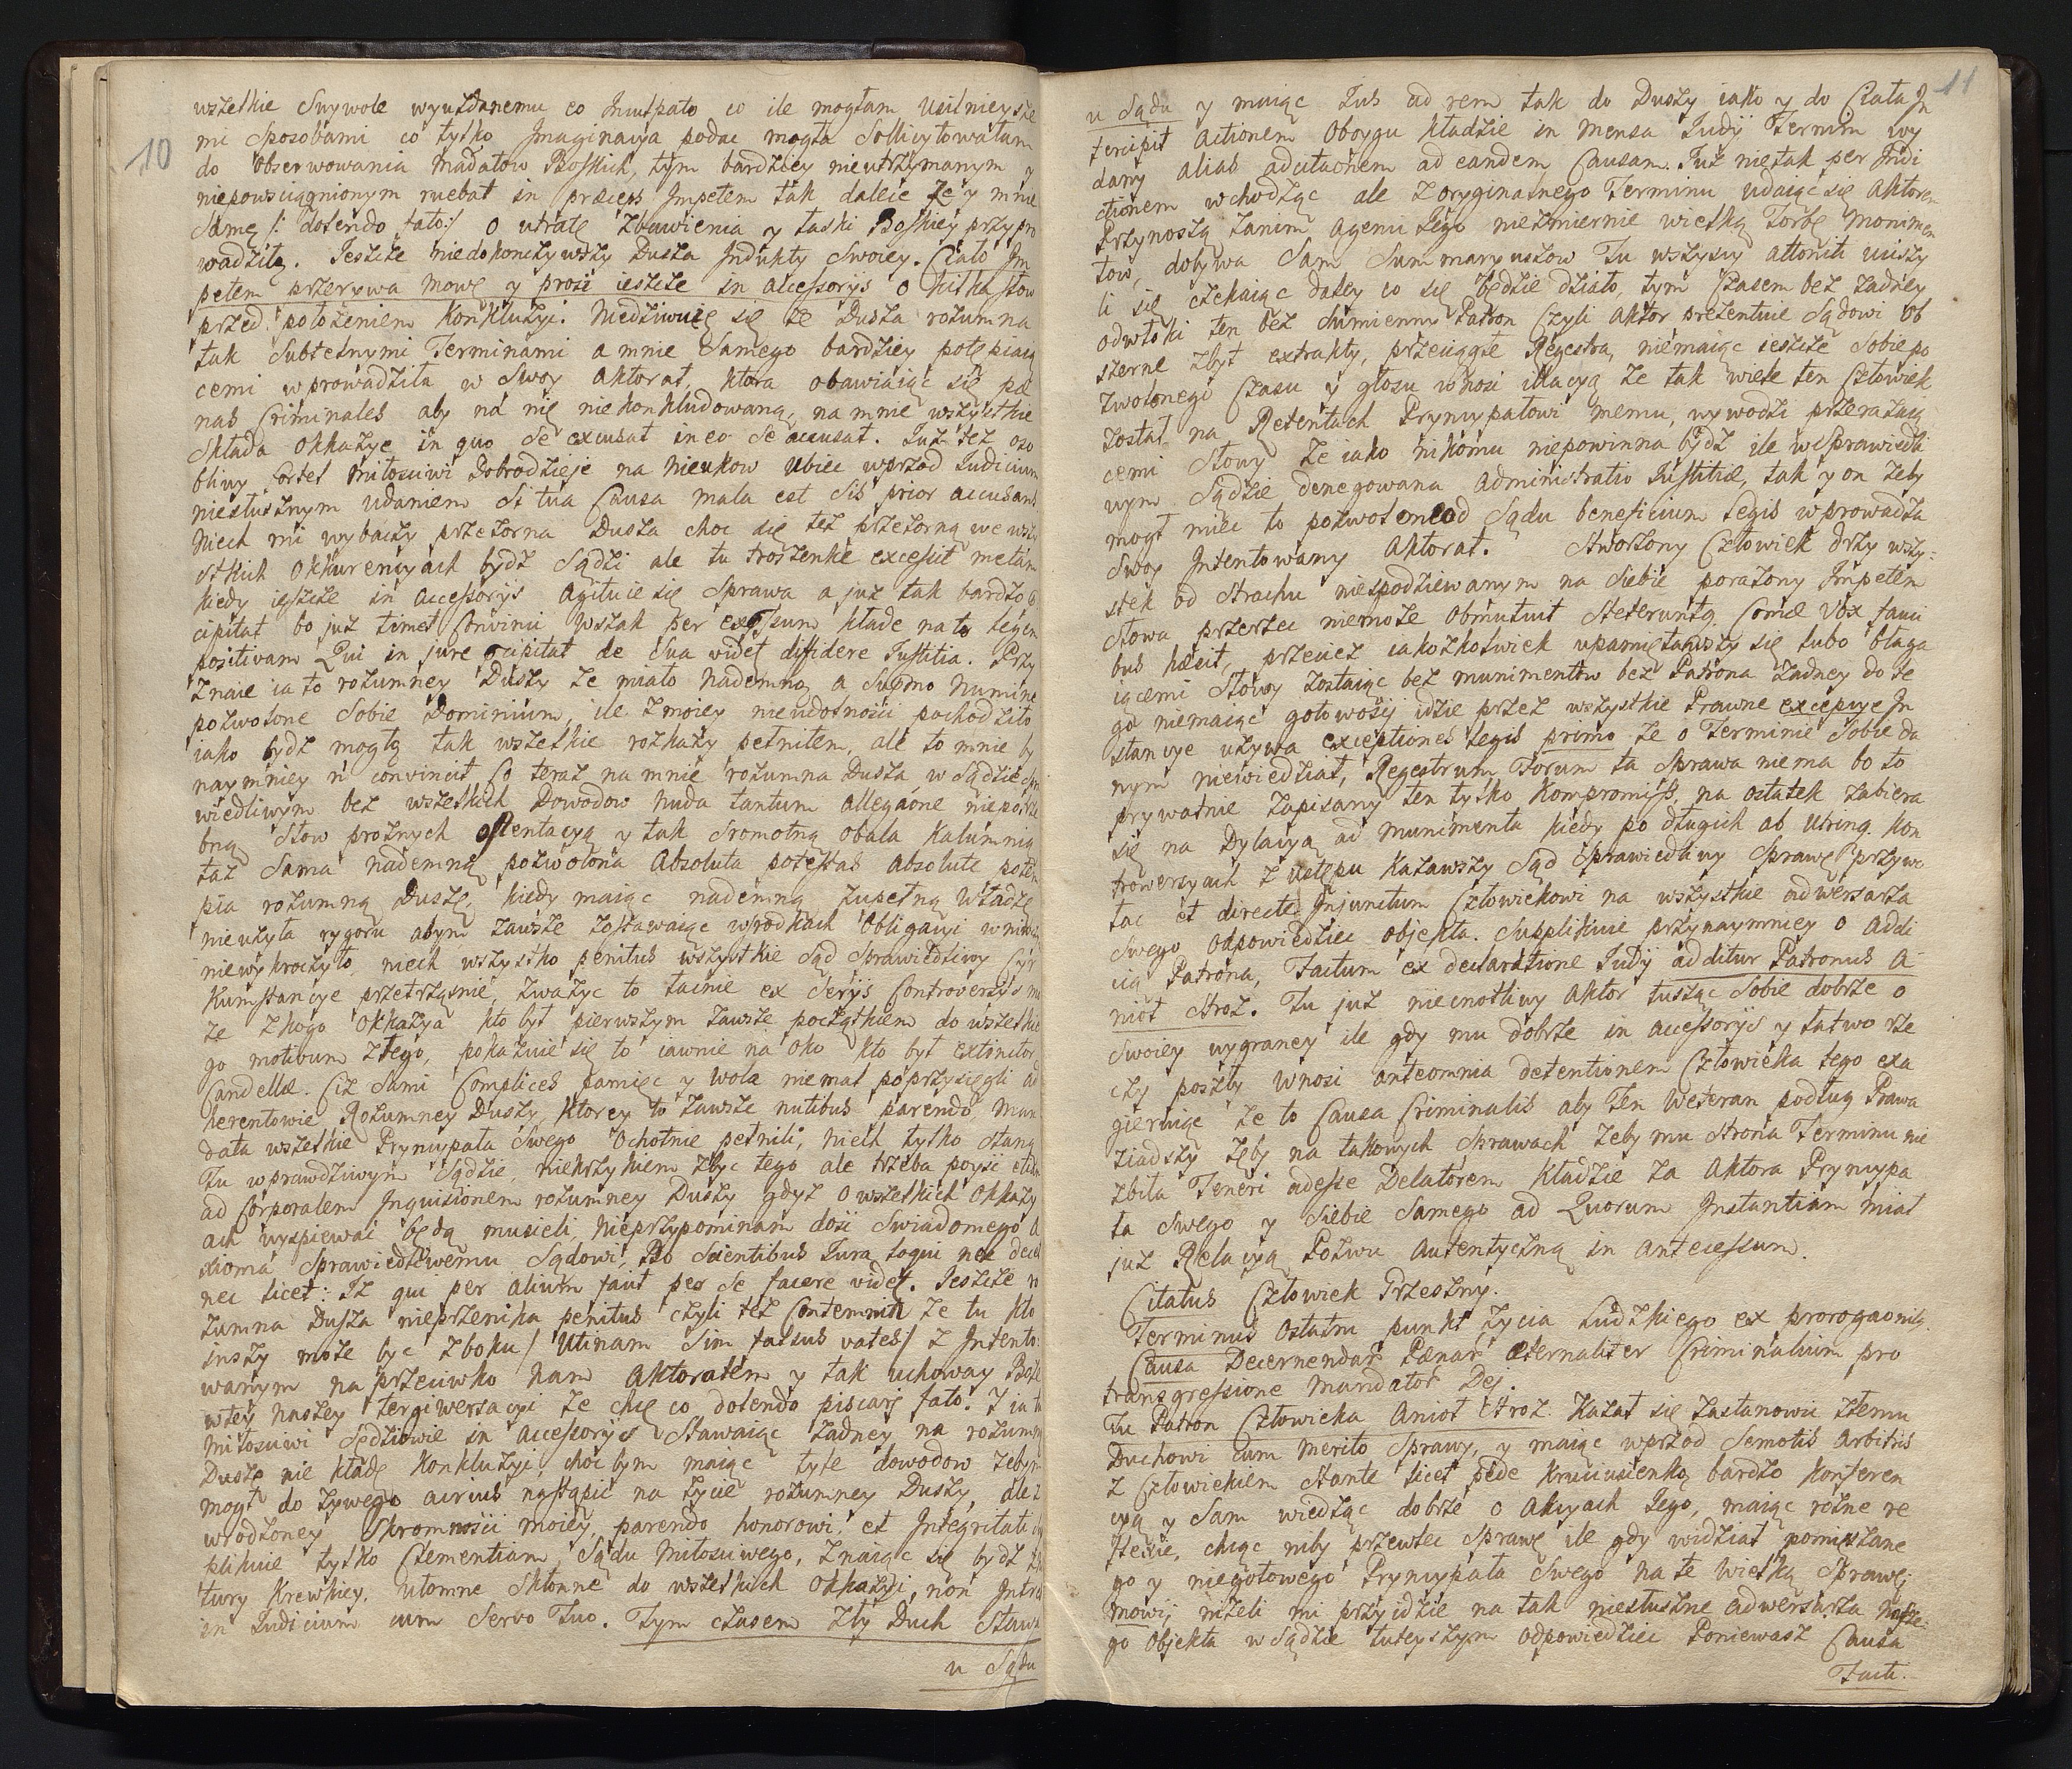 10
wszelkie Swywole wyuzdanemu co Inculpato co ile mogłam Usilnieysze
mi Sposobami co tylko Imaginacya podac mogła Sollicytowałam
do Obserwowania Madatow Boskich, tym bardziey nieutrzymanym y
niepowsciągnionym ruebat in præceps Impetem tak dalece że y mnie
Samę /: dolendo fato:/ o utratę Zbawienia y Łaski Boskiey przypro
wadziło. Jeszcze niedokonczywszy Dusza Indukty Swoiey. Ciało Im
petem przerywa mowę y prosi ieszcze in accessoryis o kilka słow
przed położeniem Konkluzyi. Niedziwuię się że Dusza rozumna
tak Subtelnymi Terminami a mnie Samego bardziey potępiaią
cemi wprowadziła w Swoy Aktorat, ktora obawiaiąc się pæ
nas Criminales aby na nię niekonkludowano, na mnie wszystkie
Składa Okkazye in quo Se excusat in eo Se accusat. Już też oso
bliwy fortel Miłosciwi Dobrodzieje na Nieukow Ubiec wprzod Iudicium
niesłusznym udaniem Si tua Causa mala est Sis prior accusans
Niech mi wybaczy przezorna Dusza choc się też przezorną we wszy
stkich Okkurencyach bydz Sądzi ale tu troszenke excessit metam
kiedy ieszcze in Accessoryis Agituie się Sprawa a juz tak bardzo
cipitat bo już timet Convinci Wszak per excessum kładę na to legem
positivam Qui in jure præcipitat de Sua videt diffidere Iustitia. Przy
znaie ia to rozumney Duszy że miało nademną a Supmo Numine
pozwolone Sobie Dominium, ile z moiey nieudolności pochodziło
iako bydz mogło tak wszelkie rozkazy pełniłem, ale to mnie by
naymniey ñ convincit Co teraz na mnie rozumna Dusza, w Sądzie spra
wiedliwym bez wszelkich Dowodow nuda tantum allegaone niepotrze
bną Słow proznych ostentacyą y tak Sromotną obala kalumnią
taż Sama nademną pozwolona Absoluta potestas absolute potę
pia rozumną Duszę, kiedy maiąc nademną zupełną Władzę
nieużyła rygoru abym zawsze zostawaiąc w srodkach Obligacyi w niwczym
niewykroczyło, niech wszystko penitus wszystkie Sąd Sprawiedliwy Cyr
kumstancye przetrząsnie, zważyc to łacnie ex Seryis Controversyis mo
że z kogo Okkazya kto był pierwszym zawsze początkiem do wszelkie
go motivum złego, pokażnie się to iawnie na oko kto był extinctor
Candellæ. Ciż Sami Complices pamięc y Wola niemal poprzysięgli ad
herentowie Rozumney Duszy, ktorey to zawsze nutibus parendo, Man
data wszelkie Pryncypała Swego Ochotnie pełnili, Niech tylko staną
Tu w prawdziwym Sądzie, niekrzykiem zbyc tego ale trzeba poysć etiam
ad Corporalem Inquisionem rozumney Duszy gdyż o wszelkich Okkazy
ach wyspiewać będą musieli, nieprzypominam dosć Swiadomego A
xioma Sprawiedliwemu Sądowi, Bo Scientibus Iura loqui nex decet
nec licet: Iż qui per alium facit per Se facere videt. Jeszcze ro
zumna Dusza nieprzenika penitus czyli też Contemnit że tu kto
inszy może byc z boku / Utinam Sim falsus vates / z Intento
wanym na przeciwko nam Aktoratem y tak uchoway Boże
w tey naszey tergiwersacyi że chcę co dolendo piscari fato. Y ia tu
Miłosciwi Sędziowie in accessoryis Stawaiąc żadney na rozumną
Duszę nie kładę Konkluzyi, choc bym maiąc tyle dowodow żebym
mogł do żywego acrius nastąpić na życie rozumney Duszy, ale z
wrodzoney Skromności moiey, parendo honorowi. et Integritati
plikuie tylko Clementiam Sądu Miłosciwego, znaiąc się bydz
tury Krewkiey, ułomne Skłonne do wszelkich Okkazyi, non Intres
in Iudicium cum Servo Tuo. Tym czasem Zły Duch Stawa
u Sądu
11
u Sądu y maiąc Ius ad rem tak do Duszy iako y do Ciała In
tercipit Actionem Oboygu kładzie in Mensa Iudÿ Termin wy
dany alias adcitaõnem ad eandem Causam. Iuż nie tak per Indi
ctionem wchodząc ale z oryginalnego Terminu udaiąc się Aktorem
Przynoszą zanim Agenci Jego niezmiernie wielką Torbę Monimen
tow, dobywa Sam Summaryuszow Tu wszyscy attoniti uciszy
li się czekaiąc daley co się będzie działo, tym Czasem bez żadney
odwłoki ten bez sumienny Patron Czyli Aktor prezentuie Sądowi Ob
szerne zbyt extrakty, przeciągłe Regestra, niemaiąc ieszcze Sobie po
zwolonego Czasu y głosu wnosi illacyą że tak wiele ten Człowiek
został na Retentach Pryncypałowi memu, wywodzi przerażaią
cemi Słowy że iako nikomu niepowinna bydz ile w Sprawiedli
wym Sądzie denegowana Administratio Iustitiæ, tak y on żeby
mogł miec to pozwolone od Sądu beneficium Legis wprowadza
Swoy Intentowany Aktorat. Stworzony Człowiek drzy wszy=
stek od strachu niespodziewanym na Siebie porażony Impetem
Słowa przerzec niemoże Obmutuit steteruntq. Comæ vox fauci
bus hæsit, przeciez iakożkolwiek upamiętawszy się lubo błaga
iącemi Słowy zostaiąc bez munimentow bez Patrona żadney do te
go niemaiąc gotowości idzie przez wszystkie Prawne excepcye In
stancye używa exceptiones Legis primo że o Terminie Sobie da
nym niewiedział, Regestrum Forum ta Sprawa nie ma bo to
prywatnie zapisany ten tylko Kompromiss, na ostatek zabiera
się na Dylacyą ad Munimenta kiedy po długich ab utring. Kon
trowersyach z Ustępu kazawszy Sąd Sprawiedliwy Sprawę przywo
łac et directe Injunctum Człowiekowi na wszystkie adwersarza
Swego Odpowiedziec objekta. Supplikuie przynaymniey o addi
cią Patrona, Factum ex declaratione Iudÿ additur Patronus A
nioł Stroż. Tu już niecnotliwy Aktor tusząc Sobie dobrze o
Swoiey wygraney ile gdy mu dobrze in accessoryis y łatwo rze
czy poszły Wnosi anteomnia detentionem Człowieka tego exa
gieruiąc że to Causa Criminalis aby Ten Weteran podług Prawa
ziadszy zęby na takowych Sprawach żeby mu strona Terminu nie
zbiła Teneri adesse Delatorem kładzie za Aktora Pryncypa
ła Swego y Siebie Samego ad Quorum Instantiam miał
już Relacyą Pozwu Autentyczną in Antecessum.
Citatus Człowiek Grzeszny.
Terminus Ostatni punkt życia Ludzkiego ex prorogaonitg
Causa Decernendar Pænar Æternaliter Criminalium pro
transgressione Mandator Dej.
Tu Patron Człowieka Anioł Stroż. Kazał się zastanowic złemu
Duchowi cum Merito Sprawy, y maiąc wprzod Semotis Arbitris
z Człowiekiem Stante licet pede Kruciusieńką bardzo Konferen
cyą y Sam wiedząc dobrze o Akcyach Jego, maiąc rożne re
flexie, chcąc niby przewlec Sprawę ile gdy widział pomieszane
go y niegotowego Pryncypała Swego na te wielką Sprawę:
mowi, niżeli mi przyidzie na tak niesłuszne adwersarza nasze=
go Objekta w Sądzie tuteyszym odpowiedziec Poniewasz Causa
Facti.